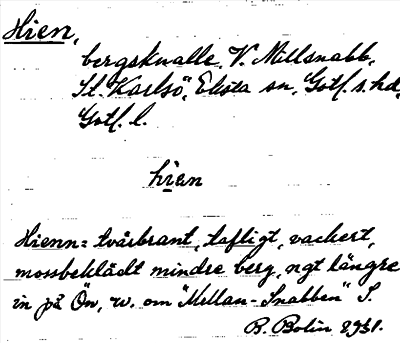 Hien,
bergsknalle, V. Millsnabb,
St. Karlsö, Eksta sn, Gotl. s. hd,
Gotl. l.
hien
Hienn = tvärbrant, tafligt, vackert,
mossbeklädt mindre berg, ngt längre
in på Ön, w. om "Mellan-Snabben" S.
B. Bolin 1931.